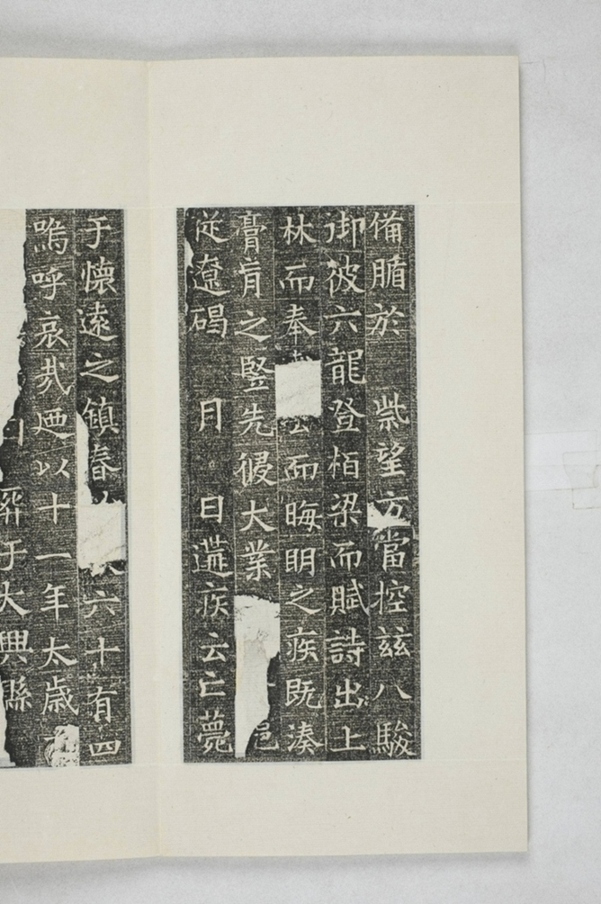 備腯於 祡望方當控茲八駿
御彼六龍登栢梁而賦詩出上
林而奉 而晦明之疾既湊
膏肓之竪先侵大業
從遼碣 月 日遘疾云亡薨
于懷遠之鎮春 六十有四
嗚呼哀哉廼以十一年太歲
日 葬于大興縣